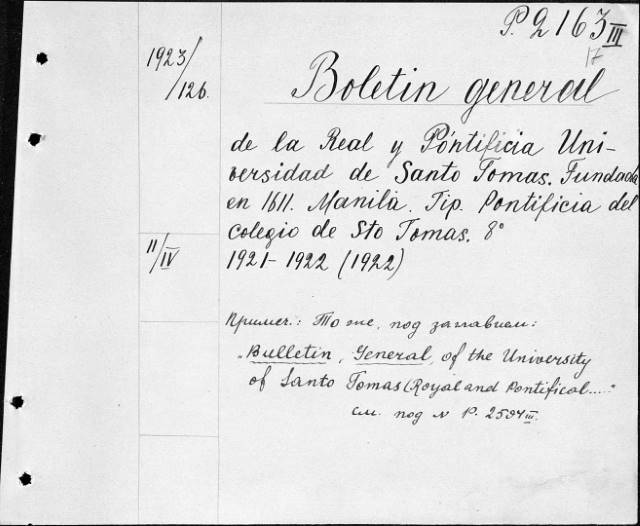 P. 2163 III
17
1923/126.
Boletin general
de la Real y Pontificia Uni-
versidad de Santo Tomas. Fundada
en 1611. Manila. Tip. Pontificia del
colegio de Sto Tomas. 8°
11/IV
1921-1922 (1922)
Примеч.: То же, под заглавием:
„Bulletin, General, of the University
of Santo Tomas (Royal and Pontifical....."
см. под № P. 2594 III.